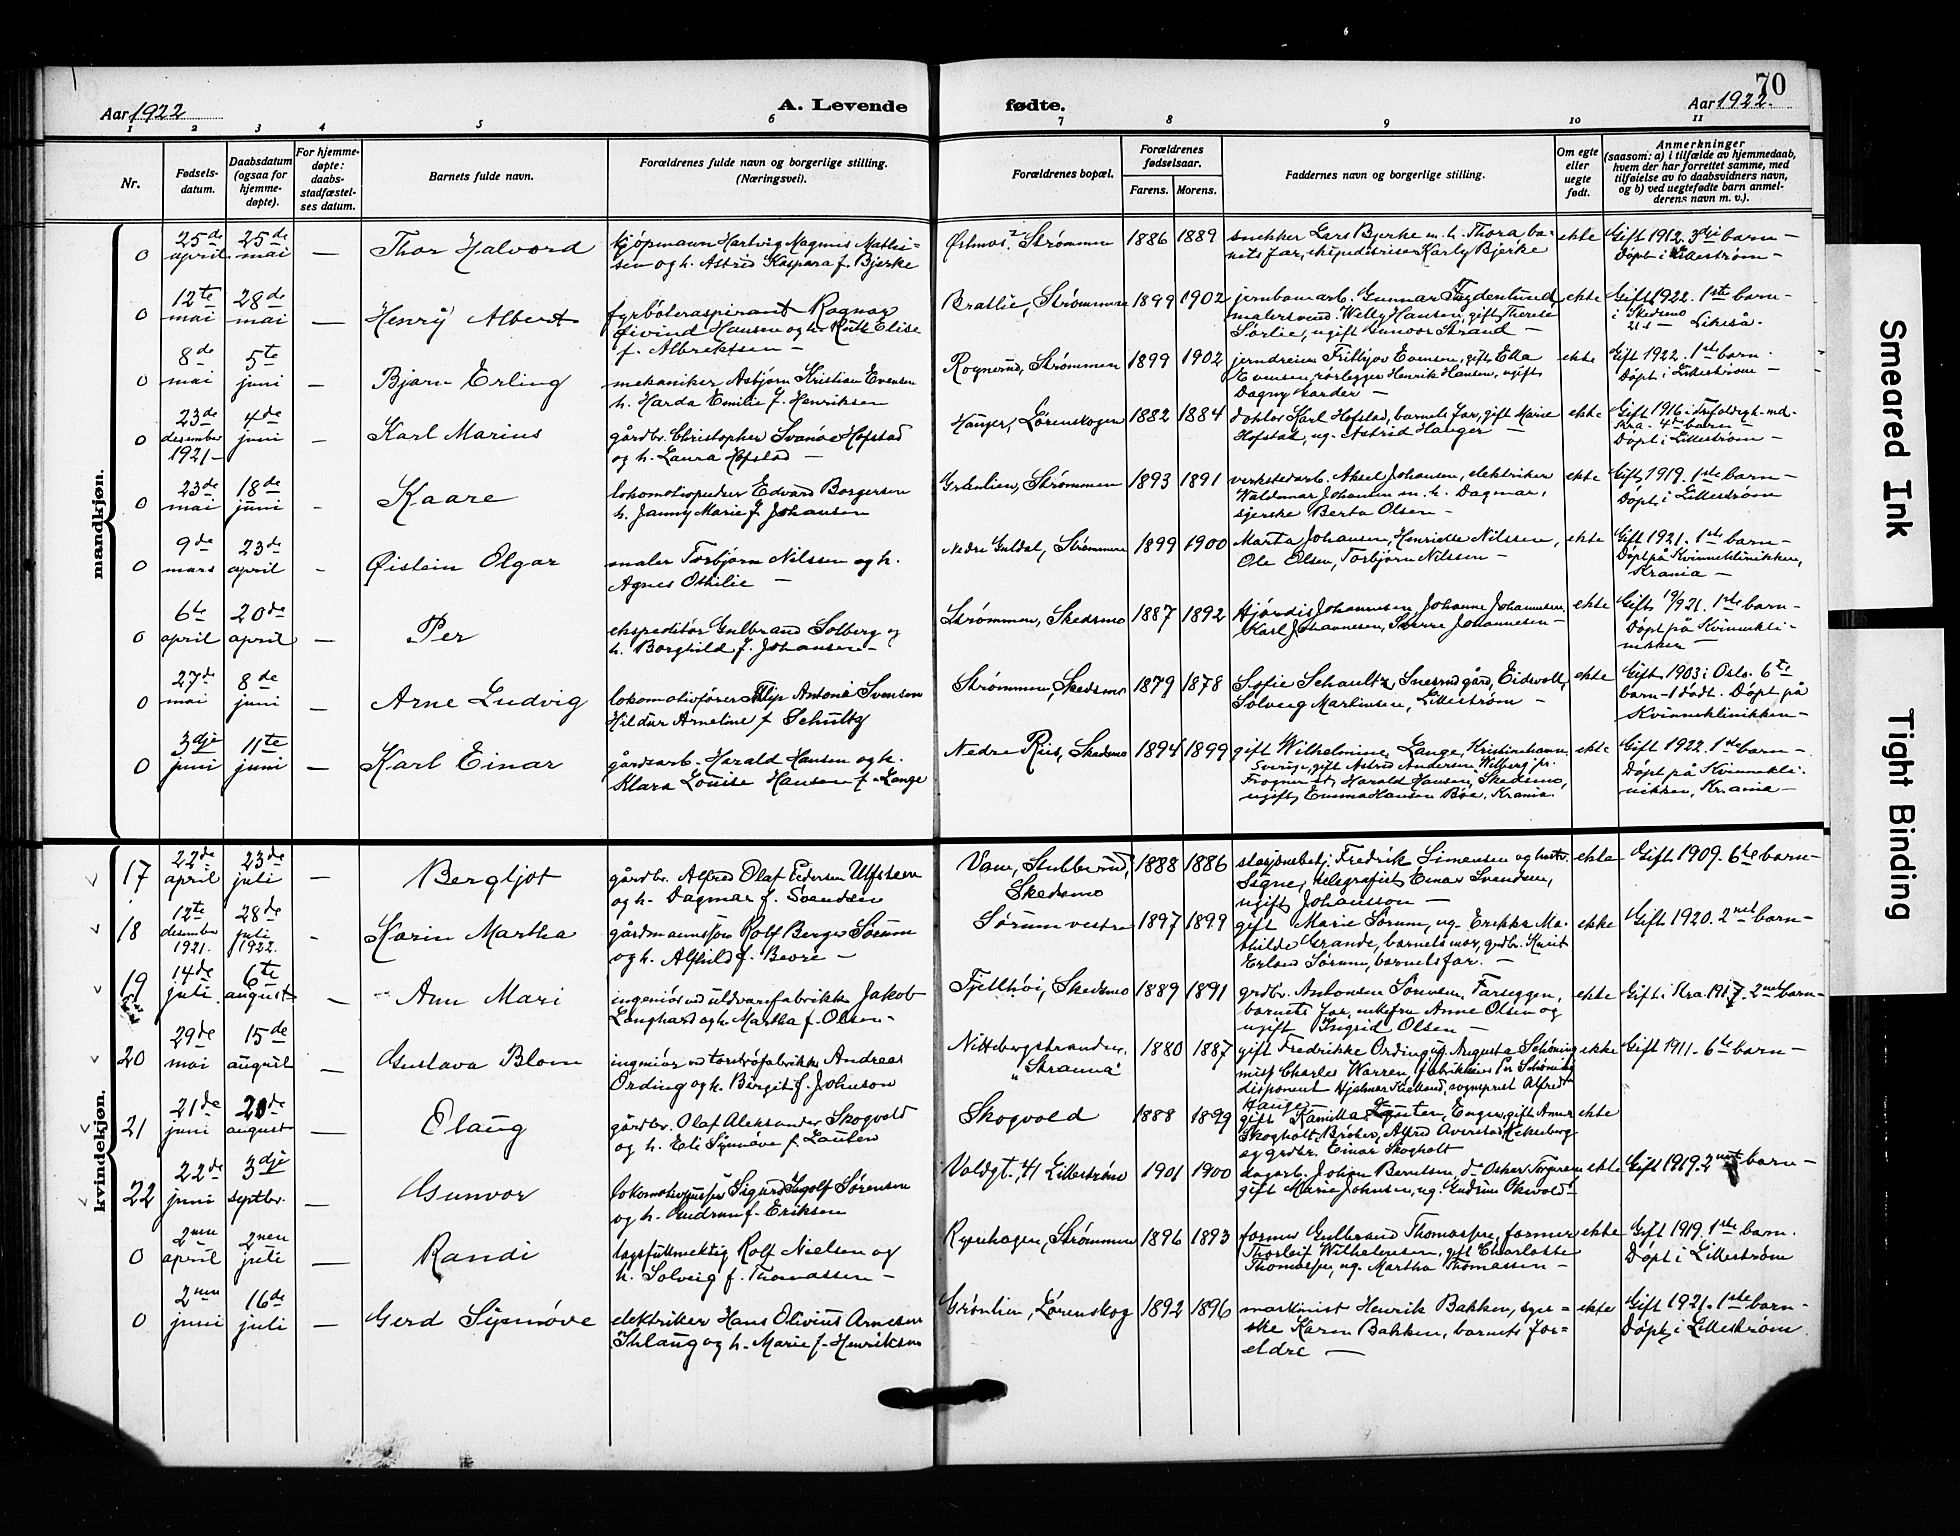 70
Aar 1922
A. Levende
fødte.
Aar 1922.
1 2 3 4 5 6 7 8 9 10 11
Nr.
Fødsels-
datum.
Daabsdatum
(ogsaa for
hjemme-
døpte).
For hjemme-
døpte:
daabs-
stadfæstel-
ses datum.
Barnets fulde navn.
Forældrenes fulde navn og borgerlige stilling.
(Næringsvei).
Forældrenes bopæl.
Forældrenes
fødselsaar.
Farens. Morens.
Faddernes navn og borgerlige stilling.
Om egte
eller
uegte
født.
Anmerkninger
(saasom: a) i tilfælde av hjemmedaab,
hvem der har forrettet samme, med
tilføielse av to daabsvidners navn,
og b) ved uegtefødte barn anmel-
derens navn m. v.).
mandkjøn.
0 25de april 25de mai — Thor Halvord
kjøpmann Hartvig Magnus Mathi-
sen og h. Astrid Kaspara f. Bjerke
Strømmen 1886 1889
snekker Lars Bjerke m. h. Thora ba-
nets far, ekspeditrise Karly Bjerke
ekte
Gift 1912. 3die barn —
Døpt i Lillestrøm —
0 12te mai 28de mai — Henry Albert
fyrbøteraspirant Ragnar
Øivind Hansen og h. Ruth Elise
f. Albrektsen —
Bratlie, Strømmen 1899 1902
jernbanearb. Gunnar
malersvend Willy Hansen, gift Therese
Sørlie, ugift Gunvor Strand —
ekte
Gift 1922. 1ste barn —
i Skedsmo
Likeså.
0 8de mai 5te juni — Bjarn Erling
mekaniker Asbjørn Kristian Evensen
h. Harda Emilie f. Henriksen
Rognerud, Strømmen 1899 1902
jerndreier Fritbjov Evensen, gift Ella
Evensen, rørlegger Henrik Hansen, ugift
Dagny Harder —
ekte
Gift 1922. 1ste barn.
Døpt i Lillestrøm —
0 23de desember 1921 — 4de juni — Karl Marius
gårdbr. Christopher Svanøe Hofstad
og h. Laura Hofstad —
Hauger, Lørenskogen 1882 1884
doktor Karl Hofstad, barnets far, gift Marie
Hofstad, ug. Astrid Hauger —
ekte
Gift 1916 i Trefoldigh-md-
Kra. 4de barn —
Døpt i Lillestrøm —
0 23de mai 18de juni - Kaare
lokomotivpudser Edvard Borgersen
h. Janny Marie f. Johansen
Grænlien, Strømmen 1893 1891
verkstedarb. Aksel Johansen, elektriker
Waldemar Johansen m. h. Dagmar,
sjerske Berta Olsen —
ekte
Gift 1919. 1ste barn —
Døpt i Lillestrøm
0 9de mars 23de april - Øistein Olgar
maler Torbjørn Nilssen og h.
Agnes Othilie —
Nedre Guldal, Strømmen 1899 1900
Marta Johansen, Henriette Nilssen,
Ole Olsen, Torbjørn Nilssen —
ekte
Gift 1921. 1ste barn —
Døpt på Kvinneklinikken,
Krania —
0 6te april 20de april — Per
ekspeditør Gulbrand Solberg og
h. Borghild f. Johansen —
Strømmen, Skedsmo 1887 1892
Hjørdis Johannesen, Johanne Johannesen,
Karl Johannesen, Sverre Johannesen —
ekte
Gift 1921. 1ste barn —
Døpt på Kvinnekli-
nikken —
0 27de mai 8de juni — Arne Ludvig
lokomotivfører Filip Antoni Svenson
Hildur Arneline f. Schultz
Strømmen, Skedsmo 1879 1878
Sofie Schaultz, Snesrudgård, Eidsvoll,
Solveig Martinsen, Lillestrøm —
ekte
Gift 1903 i Oslo. 6te
barn - 1 dødt. Døpt på
Kvinneklinikken —
0 3dje juni 11te juni — Karl Einar
gårdsarb. Harald Hansen og h.
Klara Louise Hansen f. Lange
Nedre Riis, Skedsmo 1894 1899
gift Wilhelmine Lange, Kristinehavn
Sverige, gift Astrid Andersen Wilberg pr.
Frogner st, Harald Hansen, Skedsmo,
ugift, Emma Hansen Bøe, Krania.
ekte
Gift 1922. 1ste barn —
Døpt på Kvinnekli-
nikken, Krania —
kvindekjøn.
17 22de april 23de juli — Bergljot
gårdbr. Alfred Olaf Pedersen Ulfsteen
og h. Dagmar f. Svendsen
Stubberud,
Skedsmo 1888 1886
stasjonsbetj. Fredrik Simensen og hustr.
Signe, telegrafist Einar Svendsen,
ugift Johansson —
ekte
Gift 1909. 6te barn —
18 12te desember 1921. 28de juli 1922. - Karin Martha
gårdmannssøn Rolf Berger Sørum
og h. Alfhild f. Bevre —
Sørum vestre 1897 1899
gift Marie Sørum, ug. Erikke Ma-
thilde Grande, barnets mor, grdbr. Knut
Erland Sørum, barnets far. —
ekte
Gift 1920. 2net barn —
19 14de juli 6te august — Ann Mari
ingeniør ved uldvarefabrikk Jakob
Langhard og h. Martha f. Olsen —
Fjellhøi, Skedsmo 1889 1891
grdbr. Antonsen Farseggen,
barnets far, enkefru Anne Olsen og
ugift Ingrid Olsen —
ekte
Gift i Kra. 1917. 2net barn —
20 29de mai 15de august — Gustava Blom
ingeniør ved Andreas
Ording og h. Birgit f. Johnson
Nittebergstranden,
"Stranna" 1880 1887
gift Fredrikke Ording, ug. Augusta Schøning
miss Charles Warren, fabrikkeier Per Schøning
disponent Hjalmar Kielland, sogneprest Alfred
Hauge —
ekte
Gift 1911. 6te barn —
21 21de juni 20de august — Olaug
gårdbr. Olaf Aleksander Skogvold
og h. Eli Synnøve f. Lauten
Skogvold 1888 1899
gift Kamilla Lauten, Enger, gift Anna
Skogholt, Brøter, Alfred
og grdbr. Einar Skogholt
ekte
22 22de juni 3dje septbr. — Gunvor
lokomotivpusser Sigurd Ingolf Sørensen
og h. Gudrun f. Eriksen
Voldgt. 41 Lillestrøm 1901 1900
dagarb. Johan Berntsen, do Oskar Torgersen
gift Marie Johnsen, ug. Gudrun Økvold —
ekte
Gift 1919. 2net barn —
0 2nen april 2nen juli — Randi
lagsfullmektig Rolf Nielsen og
h. Solveig f. Thomassen —
Ryenhagen, Strømmen 1896 1893
former Gulbrand Thomassen, former
Thorleif Wilhelmsen, gift Charlotte
Thomassen, ug. Martha Thomassen —
ekte
Gift 1919. 1ste barn.
Døpt i Lillestrøm
0 2nen juni 16de juli — Gerd Synnøve
elektriker Hans Olivius Arnesen
Ihlaug og h. Marie f. Henriksen
Grønlien, Lørenskog 1892 1896
maskinist Henrik Bakken, syer-
ske Karen Bakken, barnets for-
eldre —
ekte
Gift 1921. 1ste barn —
Døpt i Lillestrøm
Smeared Ink
Tight Binding